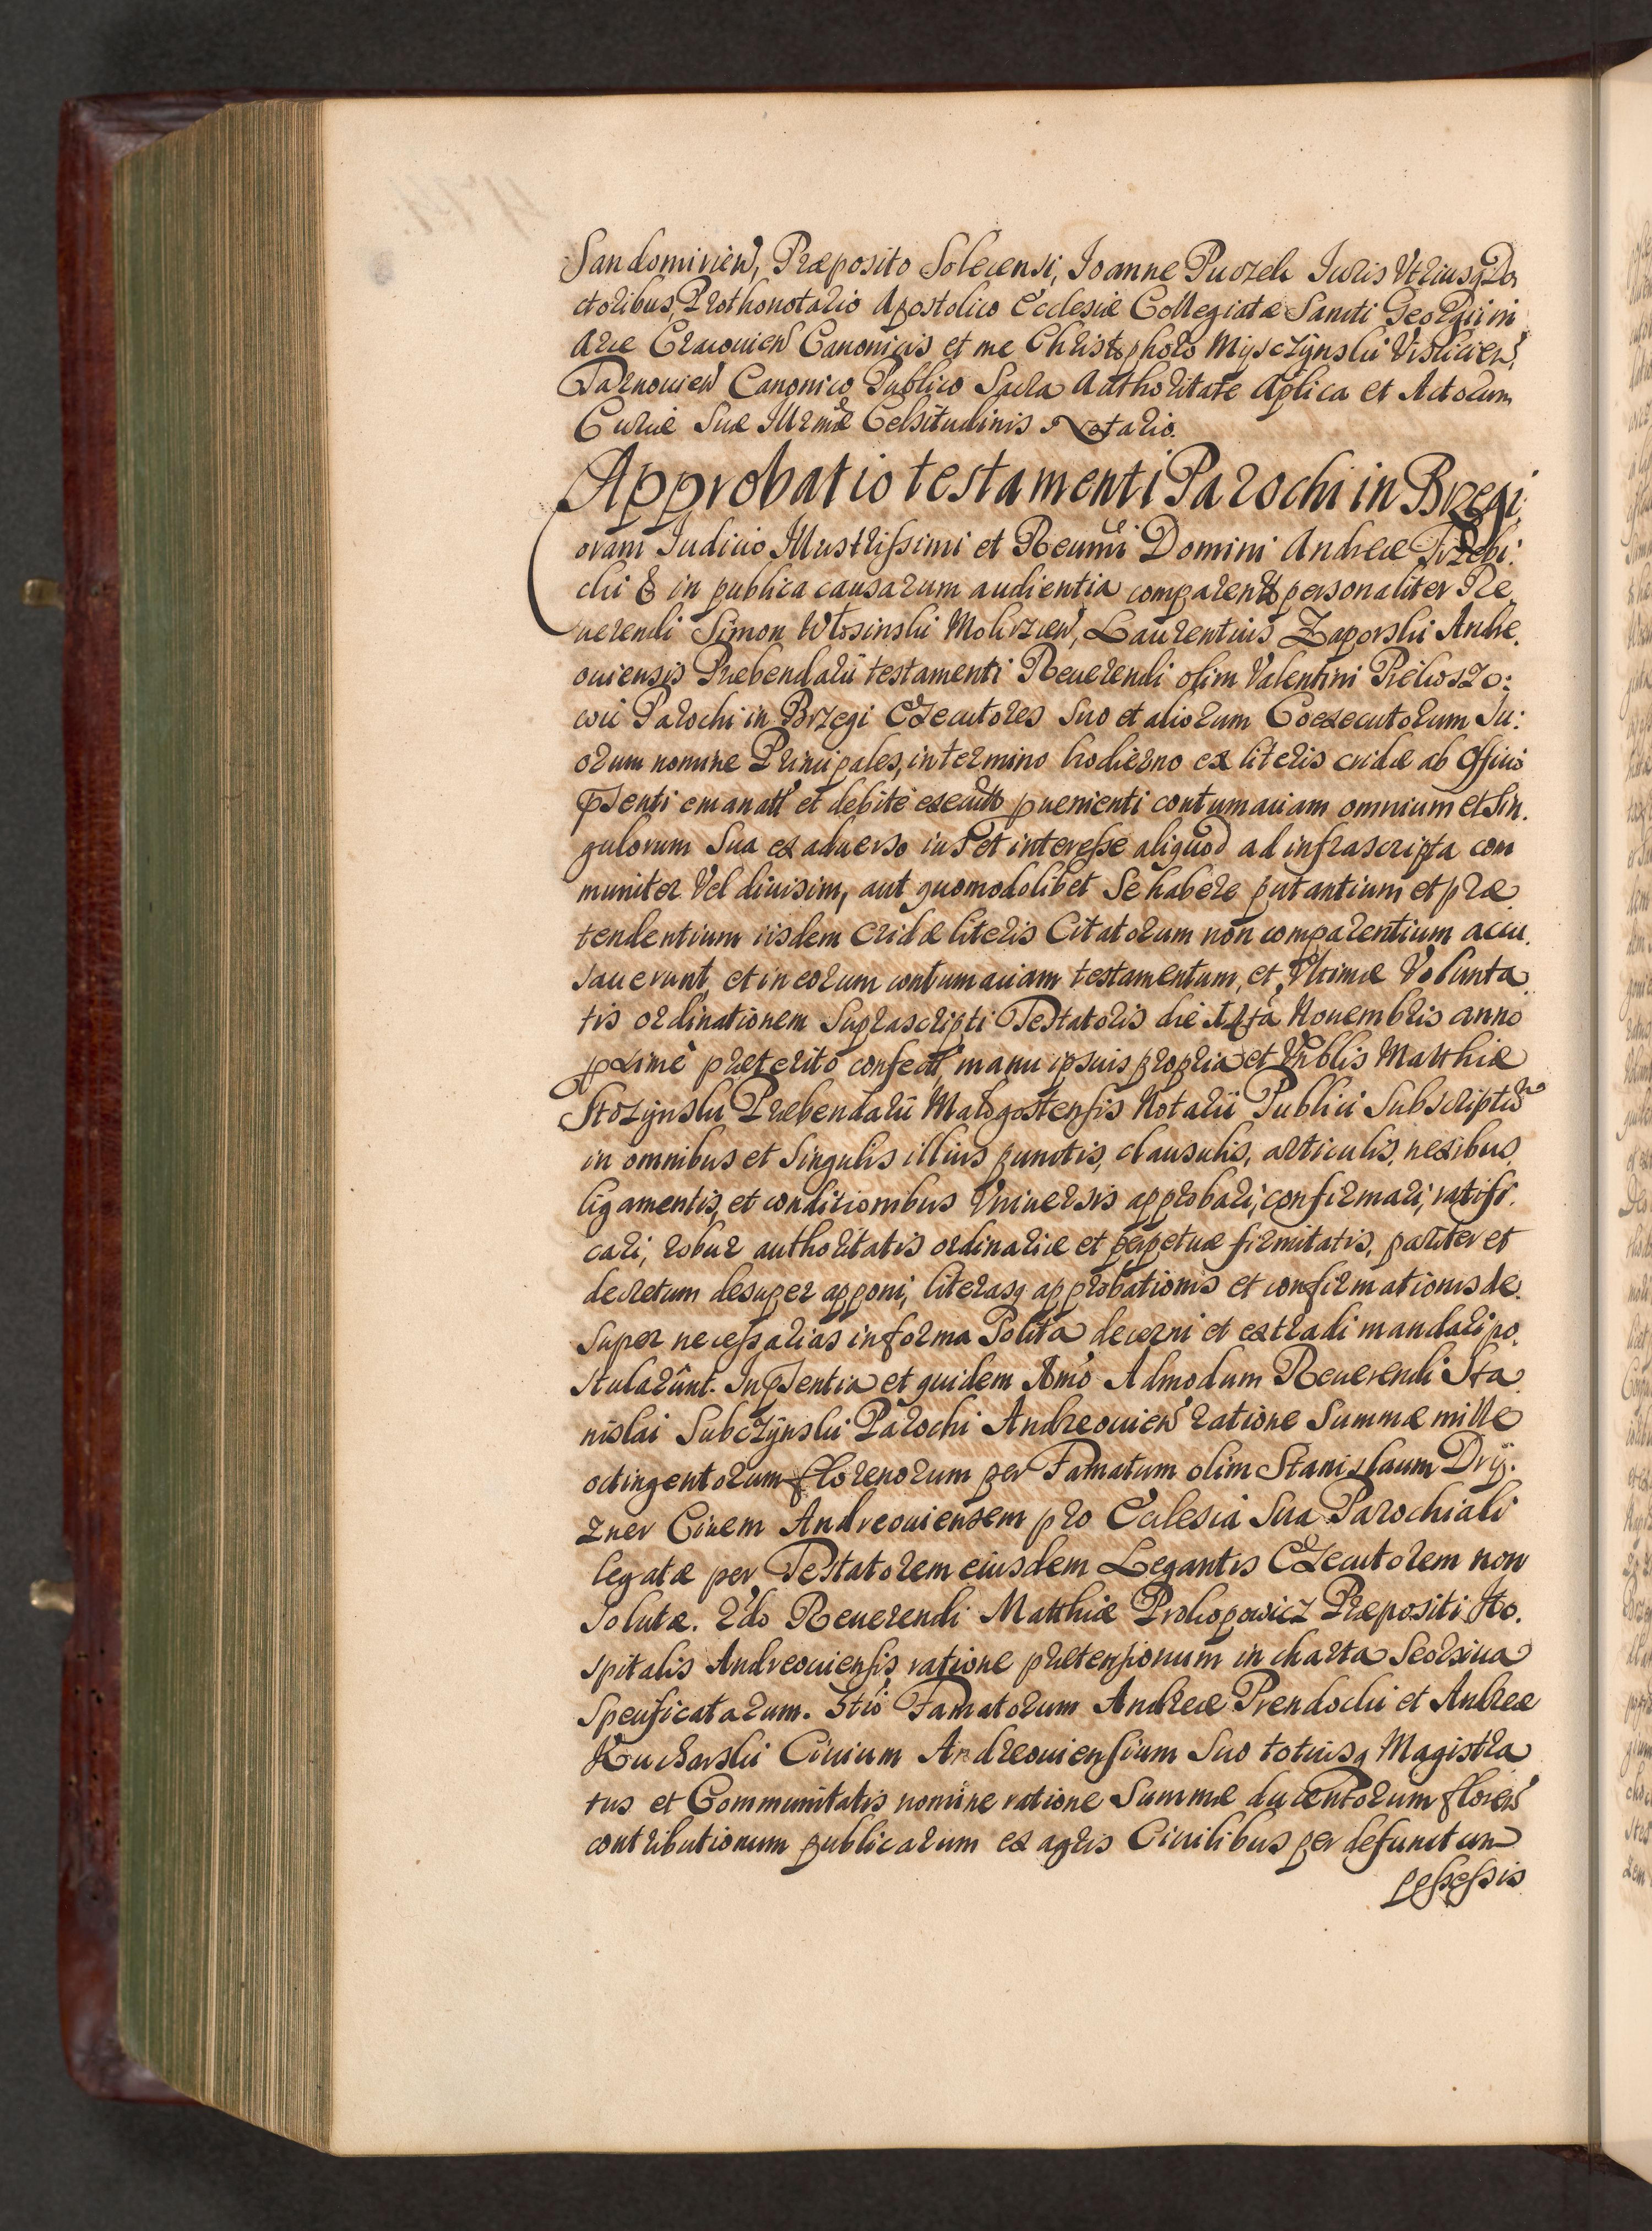 Sandomirień, Præposito Solecensi, Ioanne Puczek Iuris Vtriusq Do,
ctoribus, Prothonotario Apostolico Ecclesiæ Collegiatæ Sancti Georgii in
Arce Cracouień Canonicis et me Christophoro Mysczÿnski Visliceń,
Tarnouień Canonico Publico Sacra Authoritate Aplica et Actorum
Curiæ Suæ Illrmæ Celsitudinis Notario.
Approbatio testamenti Parochi in Brzegi
Coram Iudicio Illustrissimi et Reumi Domini Andreæ Trzebi:
cki & in publica causarum audientia comparentes personaliter Re,
uerendi Simon Włosinski Mokrzień, Laurentius Zaporski Andre,
ouiensis Præbendarii testamenti Reuerendi olim Valentini
Parochi in Brzegi Executores Suo et aliorum Coexecutorum Su:
orum nomine Principales, in termino hodierno ex literis cridæ ab Officio
pśenti emanatt et debitè executis puenienti contumaciam omnium et Sin,
gulorum Sua ex aduerso ius et interesse aliquod ad infrascripta com
muniter Vel diuisim, aut quomodolibet Se habere putantium et præ
tendentium iisdem cridæ literis Citatorum non comparentium accu,
sauerunt, et in eorum contumaciam testamentum, et Vltimæ Volunta
tis ordinationem Suprascripti Testatoris die Nouembris anno
pximè præterito confect, manu ipsius propria et Vńblis Matthiæ
Stozÿnski Præbendarii Małogostensis Notarii Publici Subscriptis
in omnibus et Singulis illius punctis, clausulis, articulis, nexibus,
ligamentis, et conditionibus Vniuersis approbari, confirmari, ratifi,
cari, robur authoritatis ordinariæ et perpetuæ firmitatis, pariter et
decretum desuper apponi, literasq approbationis et confirmationis de,
super necessarias in forma Solita decerni et extradi mandari po,
stularunt. In pśentia et quidem Imo Admodum Reuerendi Sta
nislai Subczÿnski Parochi Andreouień ratione Summæ mille
octingentorum florenorum per Famatum olim Stanislaum Drÿ:
zner Ciuem Andreouiensem pro Ecclesia Sua Parochiali
legatæ per Testatorem eiusdem Legantis Executorem non
solutæ. 2do Reuerendi Matthiæ Prokopowicz Præpositi Ho,
spitalis Andreouiensis ratione prætensionum in charta Seorsiua
Specificatarum. 3tio Famatorum Andreæ Prendocki et Andreæ
Kucharski Ciuium Andreouiensium Suo totiusq Magistra
tus et Communitatis nomine ratione Summæ ducentorum floreń
contributionum publicarum ex agris Ciuilibus per defunctum
possessis